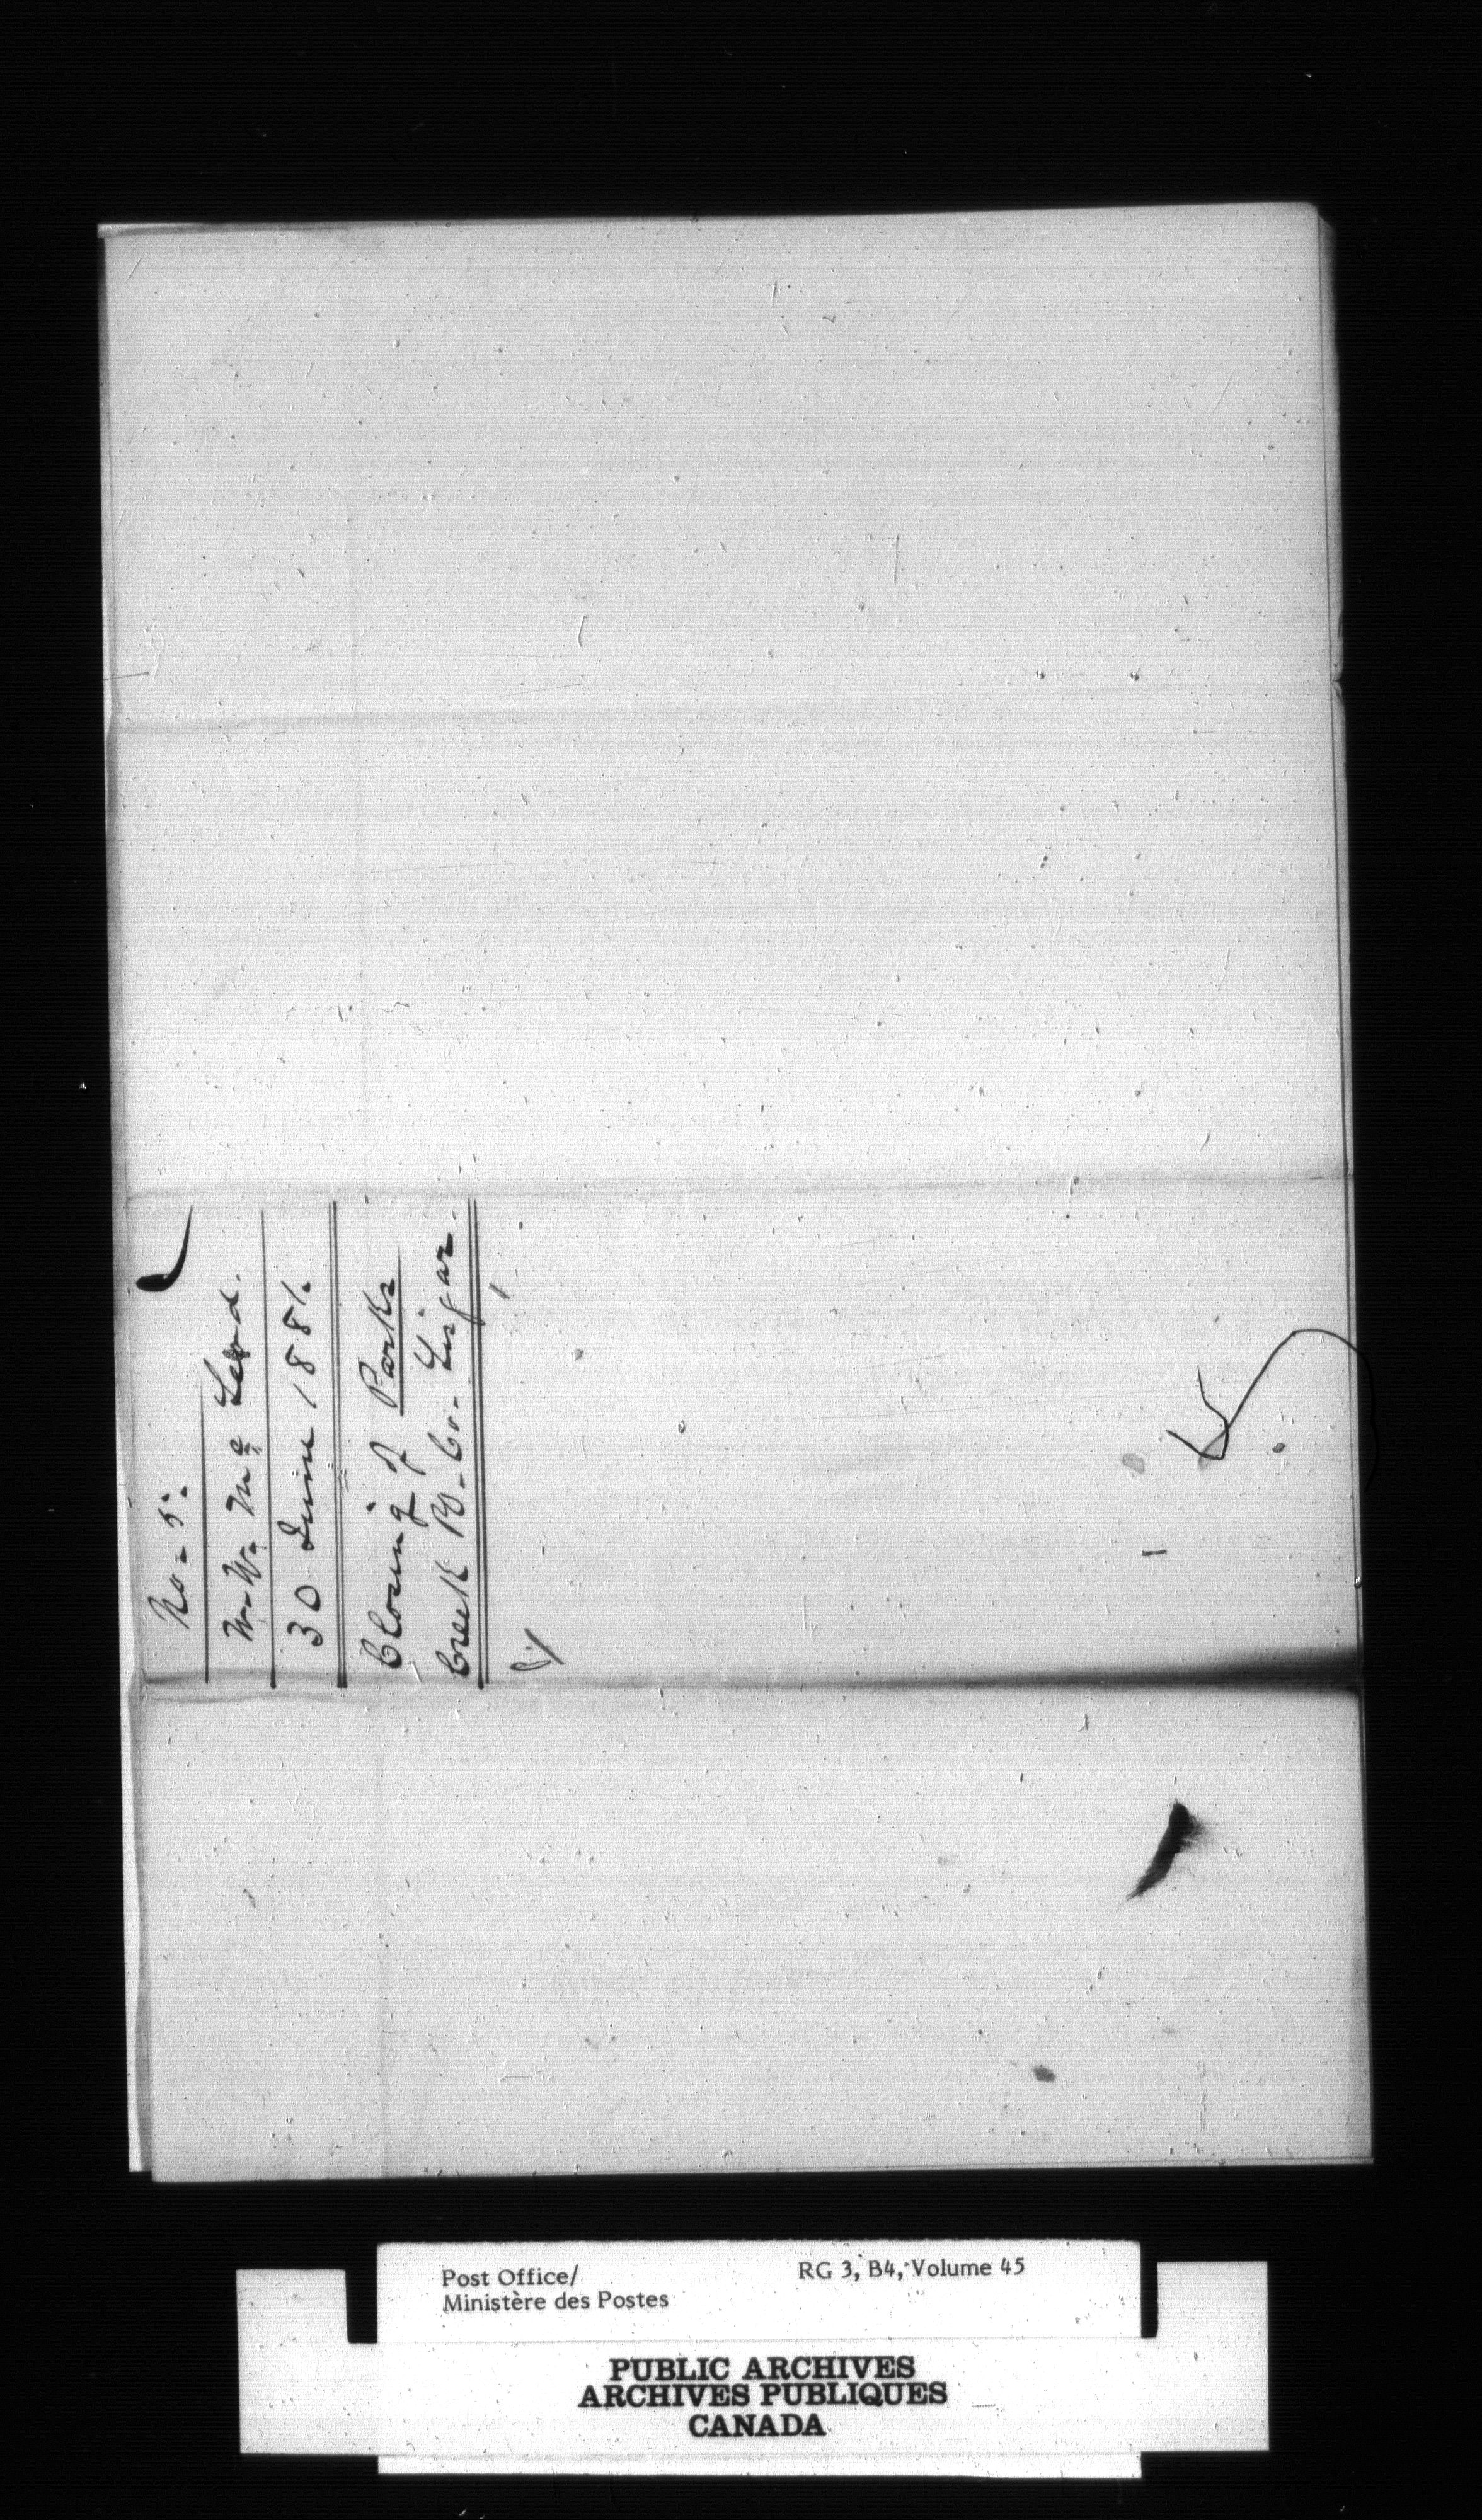 No. 5.
W. W. Mc Leod.
30 June 1881.
Closing of Parks
Creek P.O. Co. Lisgar.
Post Office/
Ministère des Postes
RG 3, B4, Volume 45
PUBLIC ARCHIVES
ARCHIVES PUBLIQUES
CANADA